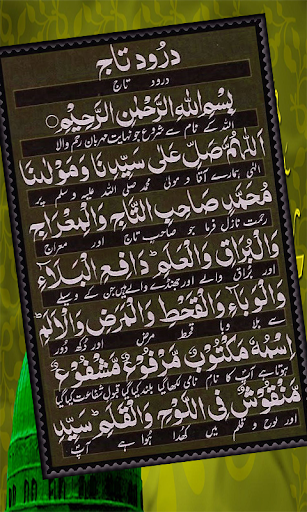 درُود تاج
درود تاج
بِسْمِ اللهِ الرَّحْمٰنِ الرَّحِيْمِ
اللہ کے نام سے شروع جو نہایت مہربان رحم والا
اَللّٰهُمَّ صَلِّ عَلٰى سَيِّدِنَا وَمَوْلٰنَا
الٰہی ہمارے آقا و مولیٰ محمد صلی اللہ علیہ وسلم پر
مُحَمَّدٍ صَاحِبِ التَّاجِ وَالْمِعْرَاجِ
رحمت نازل فرما جو صاحب تاج اور معراج
وَالْبُرَاقِ وَالْعَلَمِ دَافِعِ الْبَلَاءِ
اور براق والے اور جھنڈے والے ہیں جن کے وسیلے
وَالْوَبَاءِ وَالْقَحْطِ وَالْمَرَضِ وَالْاَلَمِ
سے بلا وبا قحط مرض اور دکھ دور
اِسْمُهٗ مَكْتُوْبٌ مَّرْفُوْعٌ مَّشْفُوْعٌ
ہوتا ہے آپ کا نام نامی لکھا گیا بلند کیا گیا قبول شفاعت کیا گیا
مَّنْقُوْشٌ فِى اللَّوْحِ وَالْقَلَمِ سَيِّدِ
اور لوح و قلم میں کھدا ہوا ہے آپ